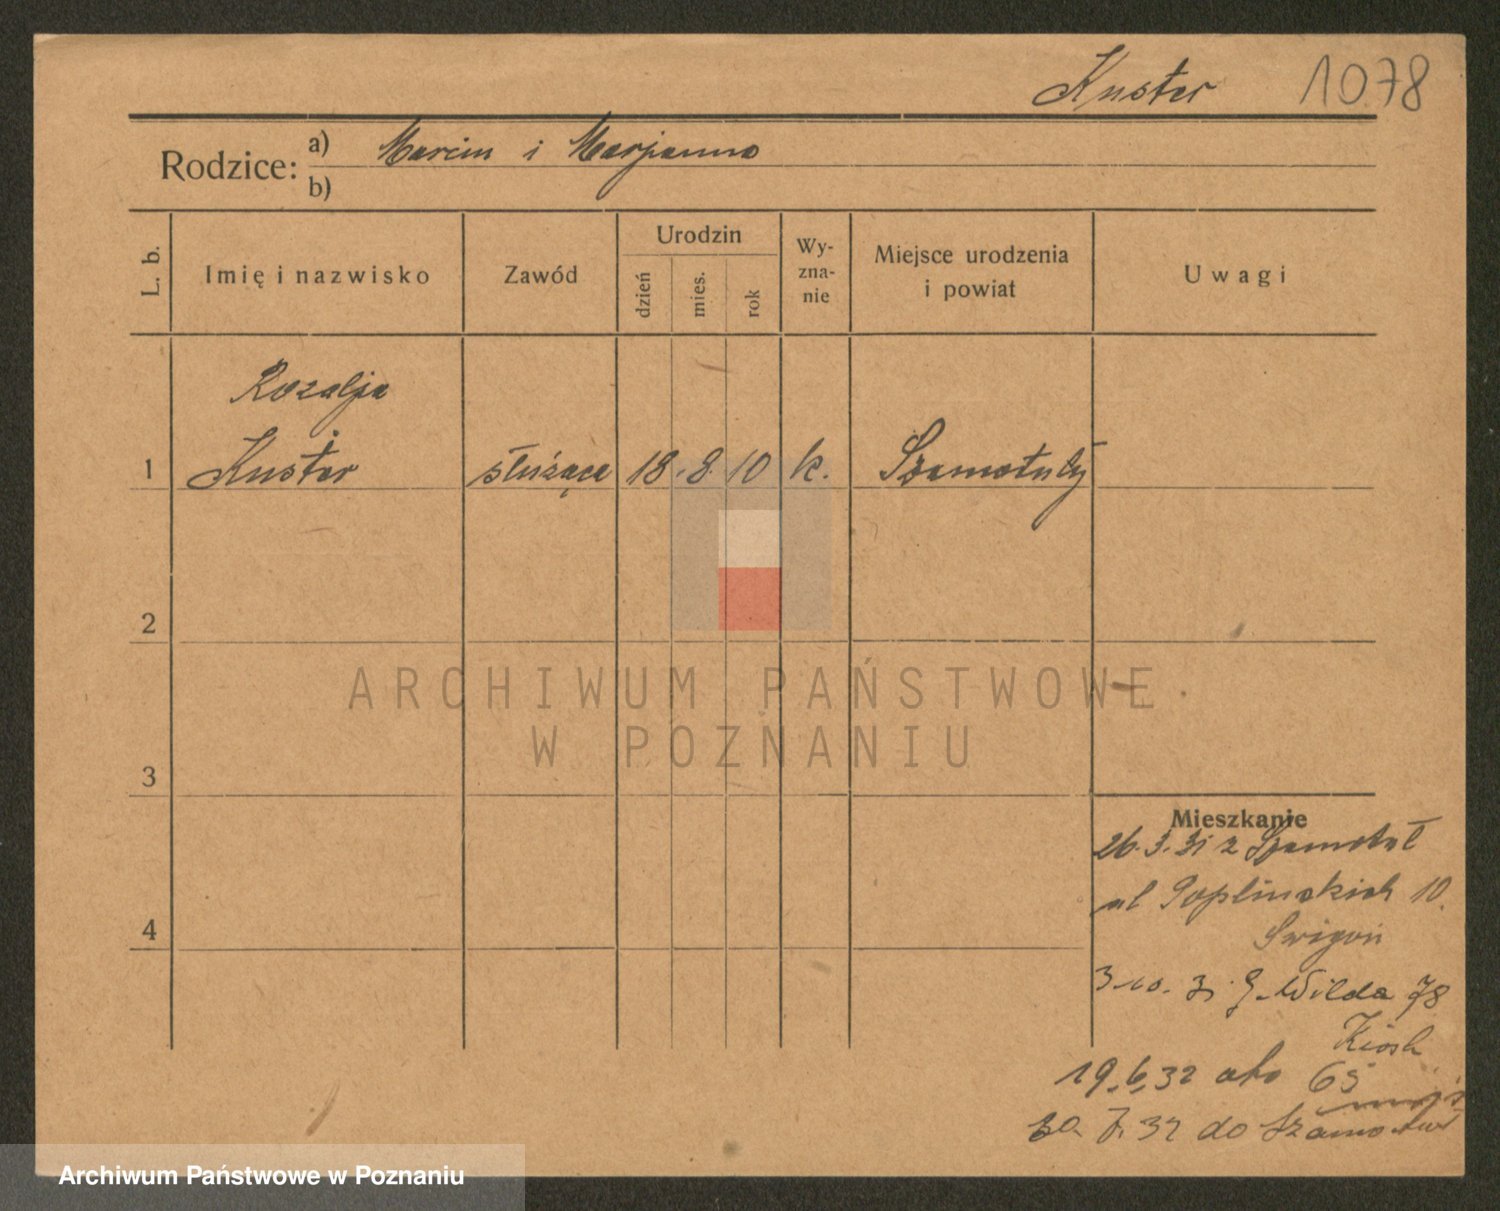 Kuster 1078
Rodzice: a) Marcin i Marjanna
b)
L. b.
Imię i nazwisko
Zawód
Urodzin
dzień
mies.
rok
Wy-
zna-
nie
Miejsce urodzenia
i powiat
Uwagi
Rozalja
1 Kuster służąca 18. 8. 10 k. Szamotuły
2
3
4
Mieszkanie
26. 3. 31 z Szamotuł
ul Poplinskich 10.
3. 10. 31 G. Wilda 78
Kiosk
19. 6. 32 65
30. 7. 32 do Szamotuł
ARCHIWUM PAŃSTWOWE
W POZNANIU
Archiwum Państwowe w Poznaniu